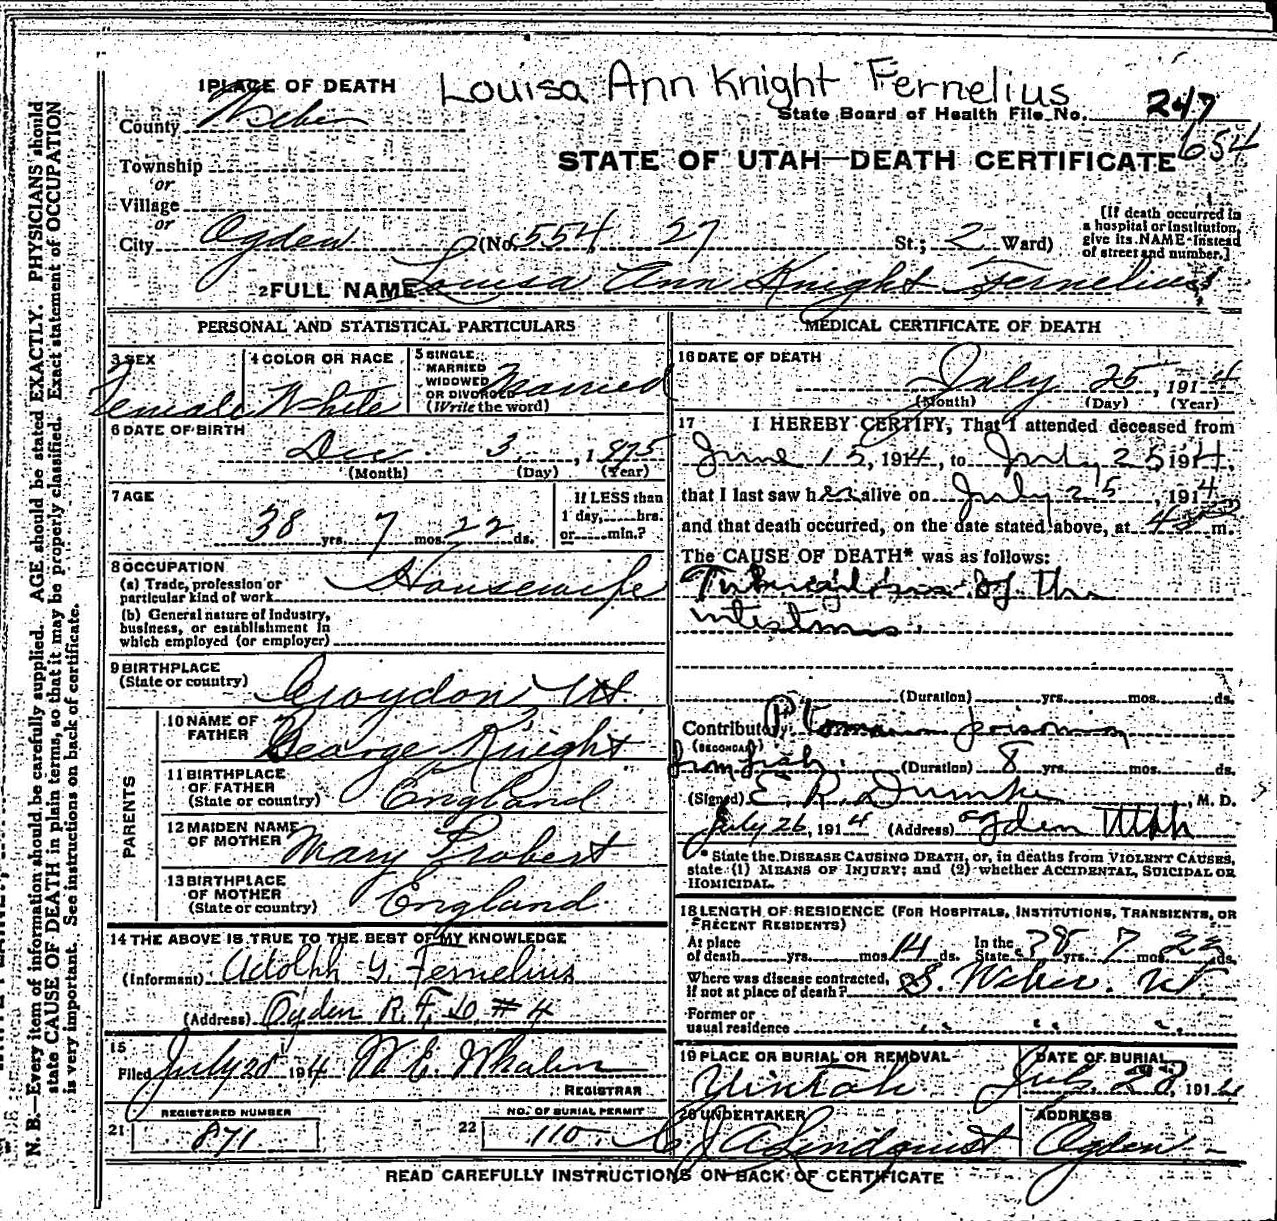 Louisa Ann Knight Fernelius
1 PLACE OF DEATH
State Board of Health File No. 247
654
County Weber
STATE OF UTAH—DEATH CERTIFICATE
Township
or
Village
or
City Ogden (No. 554 27 St.; 2 Ward)
[If death occurred in
a hospital or institution,
give its NAME instead
of street and number.]
2 FULL NAME Louisa Ann Knight Fernelius
PERSONAL AND STATISTICAL PARTICULARS
3 SEX Female
4 COLOR OR RACE White
5 SINGLE
MARRIED
WIDOWED
OR DIVORCED
(Write the word) Married
6 DATE OF BIRTH
Dec. 3, 1875
(Month) (Day) (Year)
7 AGE
38 yrs. 7 mos. 22 ds.
If LESS than
1 day, hrs.
or min.?
8 OCCUPATION
(a) Trade, profession or
particular kind of work Housewife
(b) General nature of Industry,
business, or establishment in
which employed (or employer)
9 BIRTHPLACE
(State or country) Croydon Ut.
PARENTS
10 NAME OF
FATHER George Knight
11 BIRTHPLACE
OF FATHER
(State or country) England
12 MAIDEN NAME
OF MOTHER Mary Probert
13 BIRTHPLACE
OF MOTHER
(State or country) England
14 THE ABOVE IS TRUE TO THE BEST OF MY KNOWLEDGE
(Informant) Adolph G. Fernelius
(Address) Ogden R.F.D. #4
15
Filed July 28 1914 W. E. Whalen
REGISTRAR
REGISTERED NUMBER
21 871
NO. OF BURIAL PERMIT
22 110
MEDICAL CERTIFICATE OF DEATH
16 DATE OF DEATH
July 25, 1914
(Month) (Day) (Year)
17 I HEREBY CERTIFY, That I attended deceased from
June 15, 1914, to July 25 1914,
that I last saw her alive on July 25, 1914
and that death occurred, on the date stated above, at m.
The CAUSE OF DEATH* was as follows:
Tuberculosis of the
intestines.
(Duration) yrs. mos. ds.
Contributory Ptomain poisoning
(SECONDARY)
from fish. (Duration) 8 yrs. mos. ds.
(Signed) E. R. Dumke, M. D.
July 26, 1914 (Address) Ogden Utah
* State the DISEASE CAUSING DEATH, or, in deaths from VIOLENT CAUSES,
state (1) MEANS OF INJURY; and (2) whether ACCIDENTAL, SUICIDAL OR
HOMICIDAL.
18 LENGTH OF RESIDENCE (FOR HOSPITALS, INSTITUTIONS, TRANSIENTS, OR
RECENT RESIDENTS)
At place
of death yrs. mos. 14 ds. In the
State 38 yrs. 7 mos. 22 ds.
Where was disease contracted,
If not at place of death? S. Weber. Ut.
Former or
usual residence
19 PLACE OR BURIAL OR REMOVAL
Uintah
DATE OF BURIAL
July 28, 1914
20 UNDERTAKER
A Lindquist
ADDRESS
Ogden
READ CAREFULLY INSTRUCTIONS ON BACK OF CERTIFICATE
N. B.—Every item of information should be carefully supplied. AGE should be stated EXACTLY. PHYSICIANS should
state CAUSE OF DEATH in plain terms, so that it may be properly classified. Exact statement of OCCUPATION
is very important. See instructions on back of certificate.